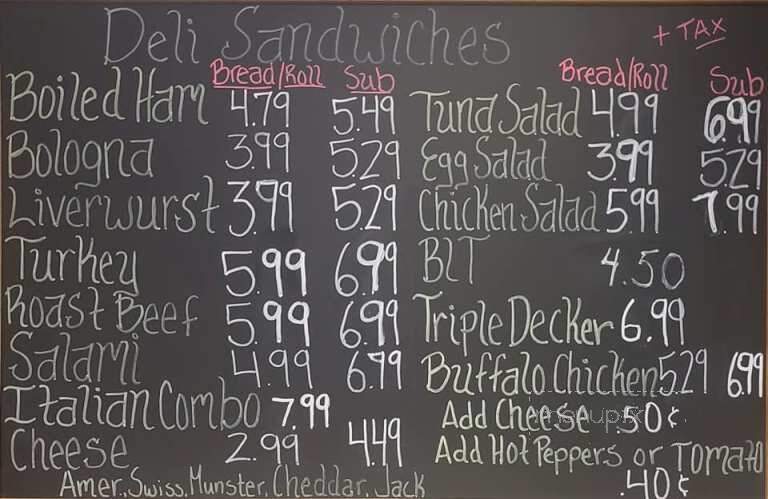 Deli Sandwiches
+ TAX
Bread/Roll Sub
Boiled Ham 4.79 5.49
Bologna 3.99 5.29
Liverwurst 3.79 5.29
Turkey 5.99 6.99
Roast Beef 5.99 6.99
Salami 4.99 6.79
Italian Combo 7.99
Cheese 2.99 4.49
Amer., Swiss, Munster, Cheddar, Jack
Bread/Roll Sub
Tuna Salad 4.99 6.99
Egg Salad 3.99 5.29
Chicken Salad 5.99 7.99
BLT 4.50
Triple Decker 6.99
Buffalo Chicken 5.29 6.99
Add Cheese .50¢
Add Hot Peppers or Tomato
.40¢